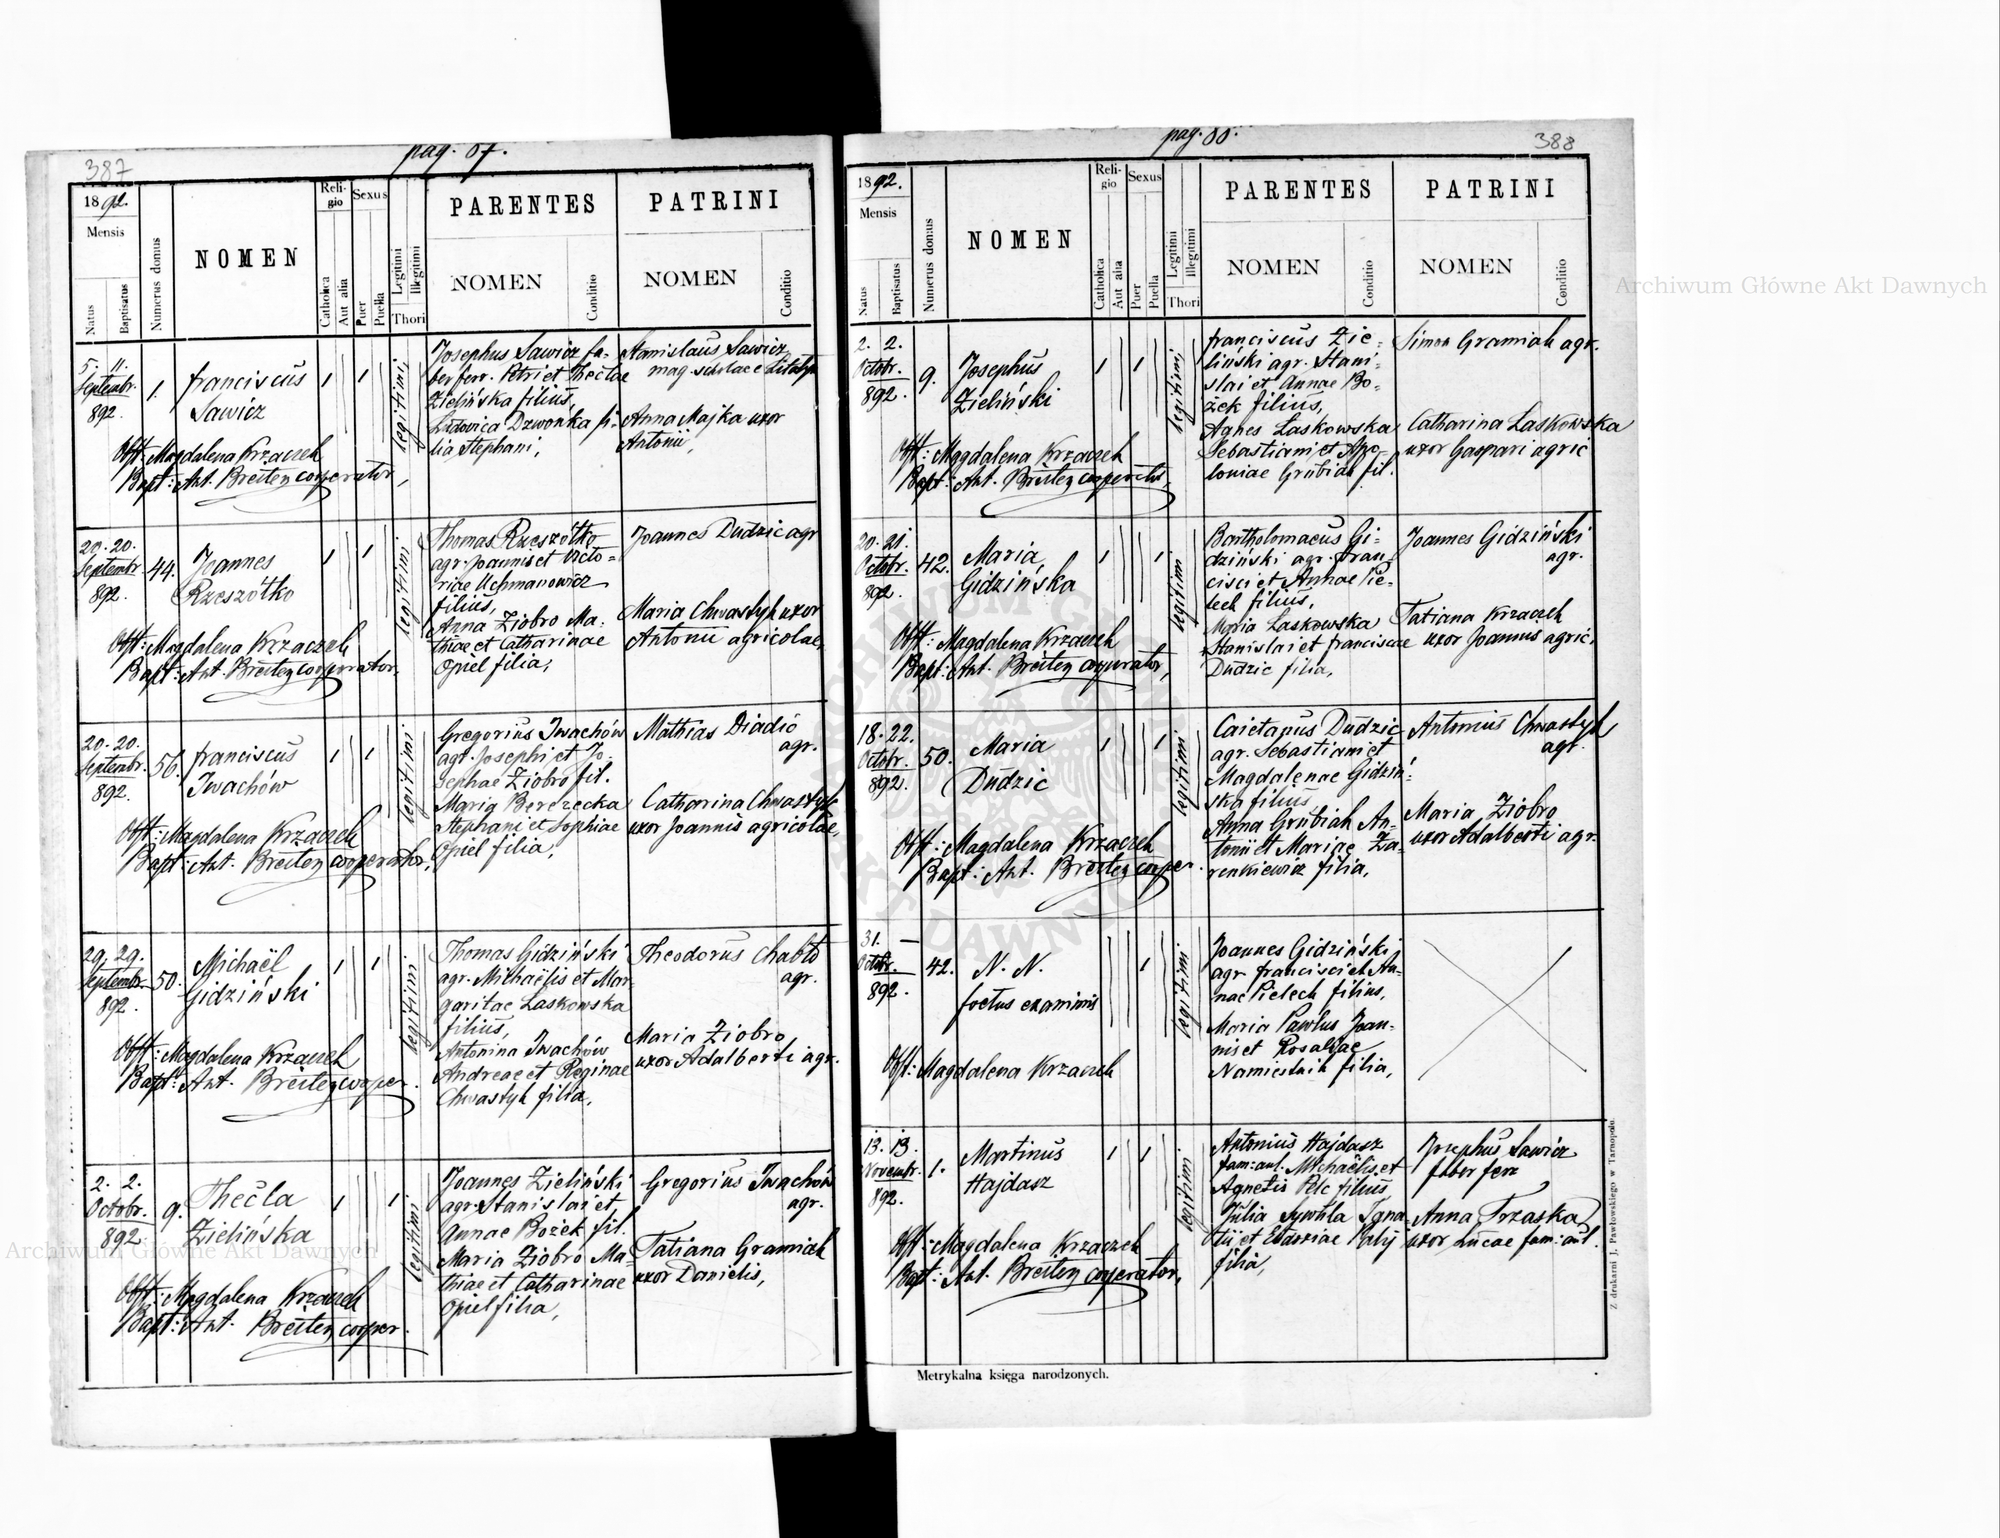 387
pag. 87.
1892.
Mensis
Natus
Baptisatus
Numerus domus
NOMEN
Religio
Catholica
Aut alia
Sexus
Puer
Puella
Legitimi
Illegitimi
Thori
PARENTES
NOMEN
Conditio
PATRINI
NOMEN
Conditio
5. 11.
Septembr.
892.
1.
Franciscus
Sawicz
1
1
legitimi
Josephus Sawicz fa-
ber ferr. Petri et Theclae
Zielińska filius,
Ludovica Dzwonka fi-
lia Stephani,
Stanislaus Sawicz
mag. scholae e
Anna Majka uxor
Antonii,
Obst: Magdalena Krzaczek
Bapt: Ant. Breiten cooperator,
20. 20.
Septembr.
892.
44.
Joannes
Rzeszótko
1
1
legitimi
Thomas Rzeszótko
agr. Joannis et Victo-
riae Uchmanowicz
filius,
Anna Ziobro Ma-
thiae et Catharinae
Opiel filia,
Joannes Dudzic agr
Maria Chwastyk uxor
Antonii agricolae,
Obst: Magdalena Krzaczek
Bapt: Ant. Breiten cooperator,
20. 20.
Septembr.
892.
56.
Franciscus
Iwachów
1
1
legitimi
Gregorius Iwachów
agr. Josephi et Jo-
sephae Ziobro fil.
Maria Berezecka
Stephani et Sophiae
Opiel filia,
Mathias Diadio
agr.
Catharina Chwastyk
uxor Joannis agricolae,
Obst: Magdalena Krzaczek
Bapt: Ant. Breiten cooperator,
29. 29.
Septembr.
892.
50.
Michaël
Gidziński
1
1
legitimi
Thomas Gidziński
agr. Michaëlis et Mar-
garitae Laskowska
filius,
Antonina Iwachów
Andreae et Reginae
Chwastyk filia,
Theodorus Chabło
agr.
Maria Ziobro
uxor Adalberti agr.
Obst: Magdalena Krzaczek
Bapt: Ant. Breiten cooper.
2. 2.
Octobr.
892
9.
Thecla
Zielińska
1
1
legitimi
Joannes Zieliński
agr. Stanislai et
Annae Bożek fil.
Maria Ziobro Ma-
thiae et Catharinae
Opiel filia,
Gregorius Iwachów
agr.
Tatiana Gramiak
uxor Danielis,
Obst: Magdalena Krzaczek
Bapt: Ant. Breiten cooper.
pag. 88.
388
1892.
Mensis
Natus
Baptisatus
Numerus domus
NOMEN
Religio
Catholica
Aut alia
Sexus
Puer
Puella
Legitimi
Illegitimi
Thori
PARENTES
NOMEN
Conditio
PATRINI
NOMEN
Conditio
2. 2.
Octobr.
892.
9.
Josephus
Zieliński
1
1
legitimi
Franciscus Zie-
liński agr. Stani-
slai et Annae Bo-
żek filius,
Agnes Laskowska
Sebastiani et Apo-
loniae Grubiak fil.
Simon Gramiak agr.
Catharina Laskowska
uxor Gaspari agric
Obst: Magdalena Krzaczek
Bapt: Ant. Breiten
20. 21.
Octobr.
892.
42.
Maria
Gidzińska
1
1
legitimi
Bartholomaeus Gi-
dziński agr. Fran-
cisci et Annae Pie-
lech filius,
Maria Laskowska
Stanislai et Franciscae
Dudzic filia,
Joannes Gidziński
agr.
Tatiana Krzaczek
uxor Joannis agric.
Obst: Magdalena Krzaczek
Bapt: Ant. Breiten cooperator,
18. 22.
Octobr.
892.
50.
Maria
Dudzic
1
1
legitimi
Caietanus Dudzic
agr. Sebastiani et
Magdalenae Gidziń-
ska filius
Anna Grubiak An-
tonii et Mariae Za-
renkiewicz filia,
Antonius Chwastyk
agr.
Maria Ziobro
uxor Adalberti agr.
Obst: Magdalena Krzaczek
Bapt: Ant. Breiten cooper.
31. —
Octobr.
892.
42.
N. N.
foetus exanimis
1
legitimi
Joannes Gidziński
agr. Francisci et An-
nae Pielech filius,
Maria Pawlus Joan-
nis et Rosaliae
Namiestnik filia,
Obst: Magdalena Krzaczek
13. 13.
Novembr.
892.
1.
Martinus
Hajdasz
1
1
legitimi
Antonius Hajdasz
fam: aul. Michaëlis et
Agnetis Pelc filius
Julia Sywula Igna-
tii et Patij
filia,
Josephus Sawicz
faber ferr
Anna Trzaska
uxor Lucae fam: aul.
Obst: Magdalena Krzaczek
Bapt: Ant. Breiten cooperator,
Metrykalna księga narodzonych.
Z drukarni J. Pawłowskiego w Tarnopolu.
Archiwum Główne Akt Dawnych
Archiwum Główne Akt Dawnych
ARCHIWUM GŁÓWNE AKT DAWNYCH